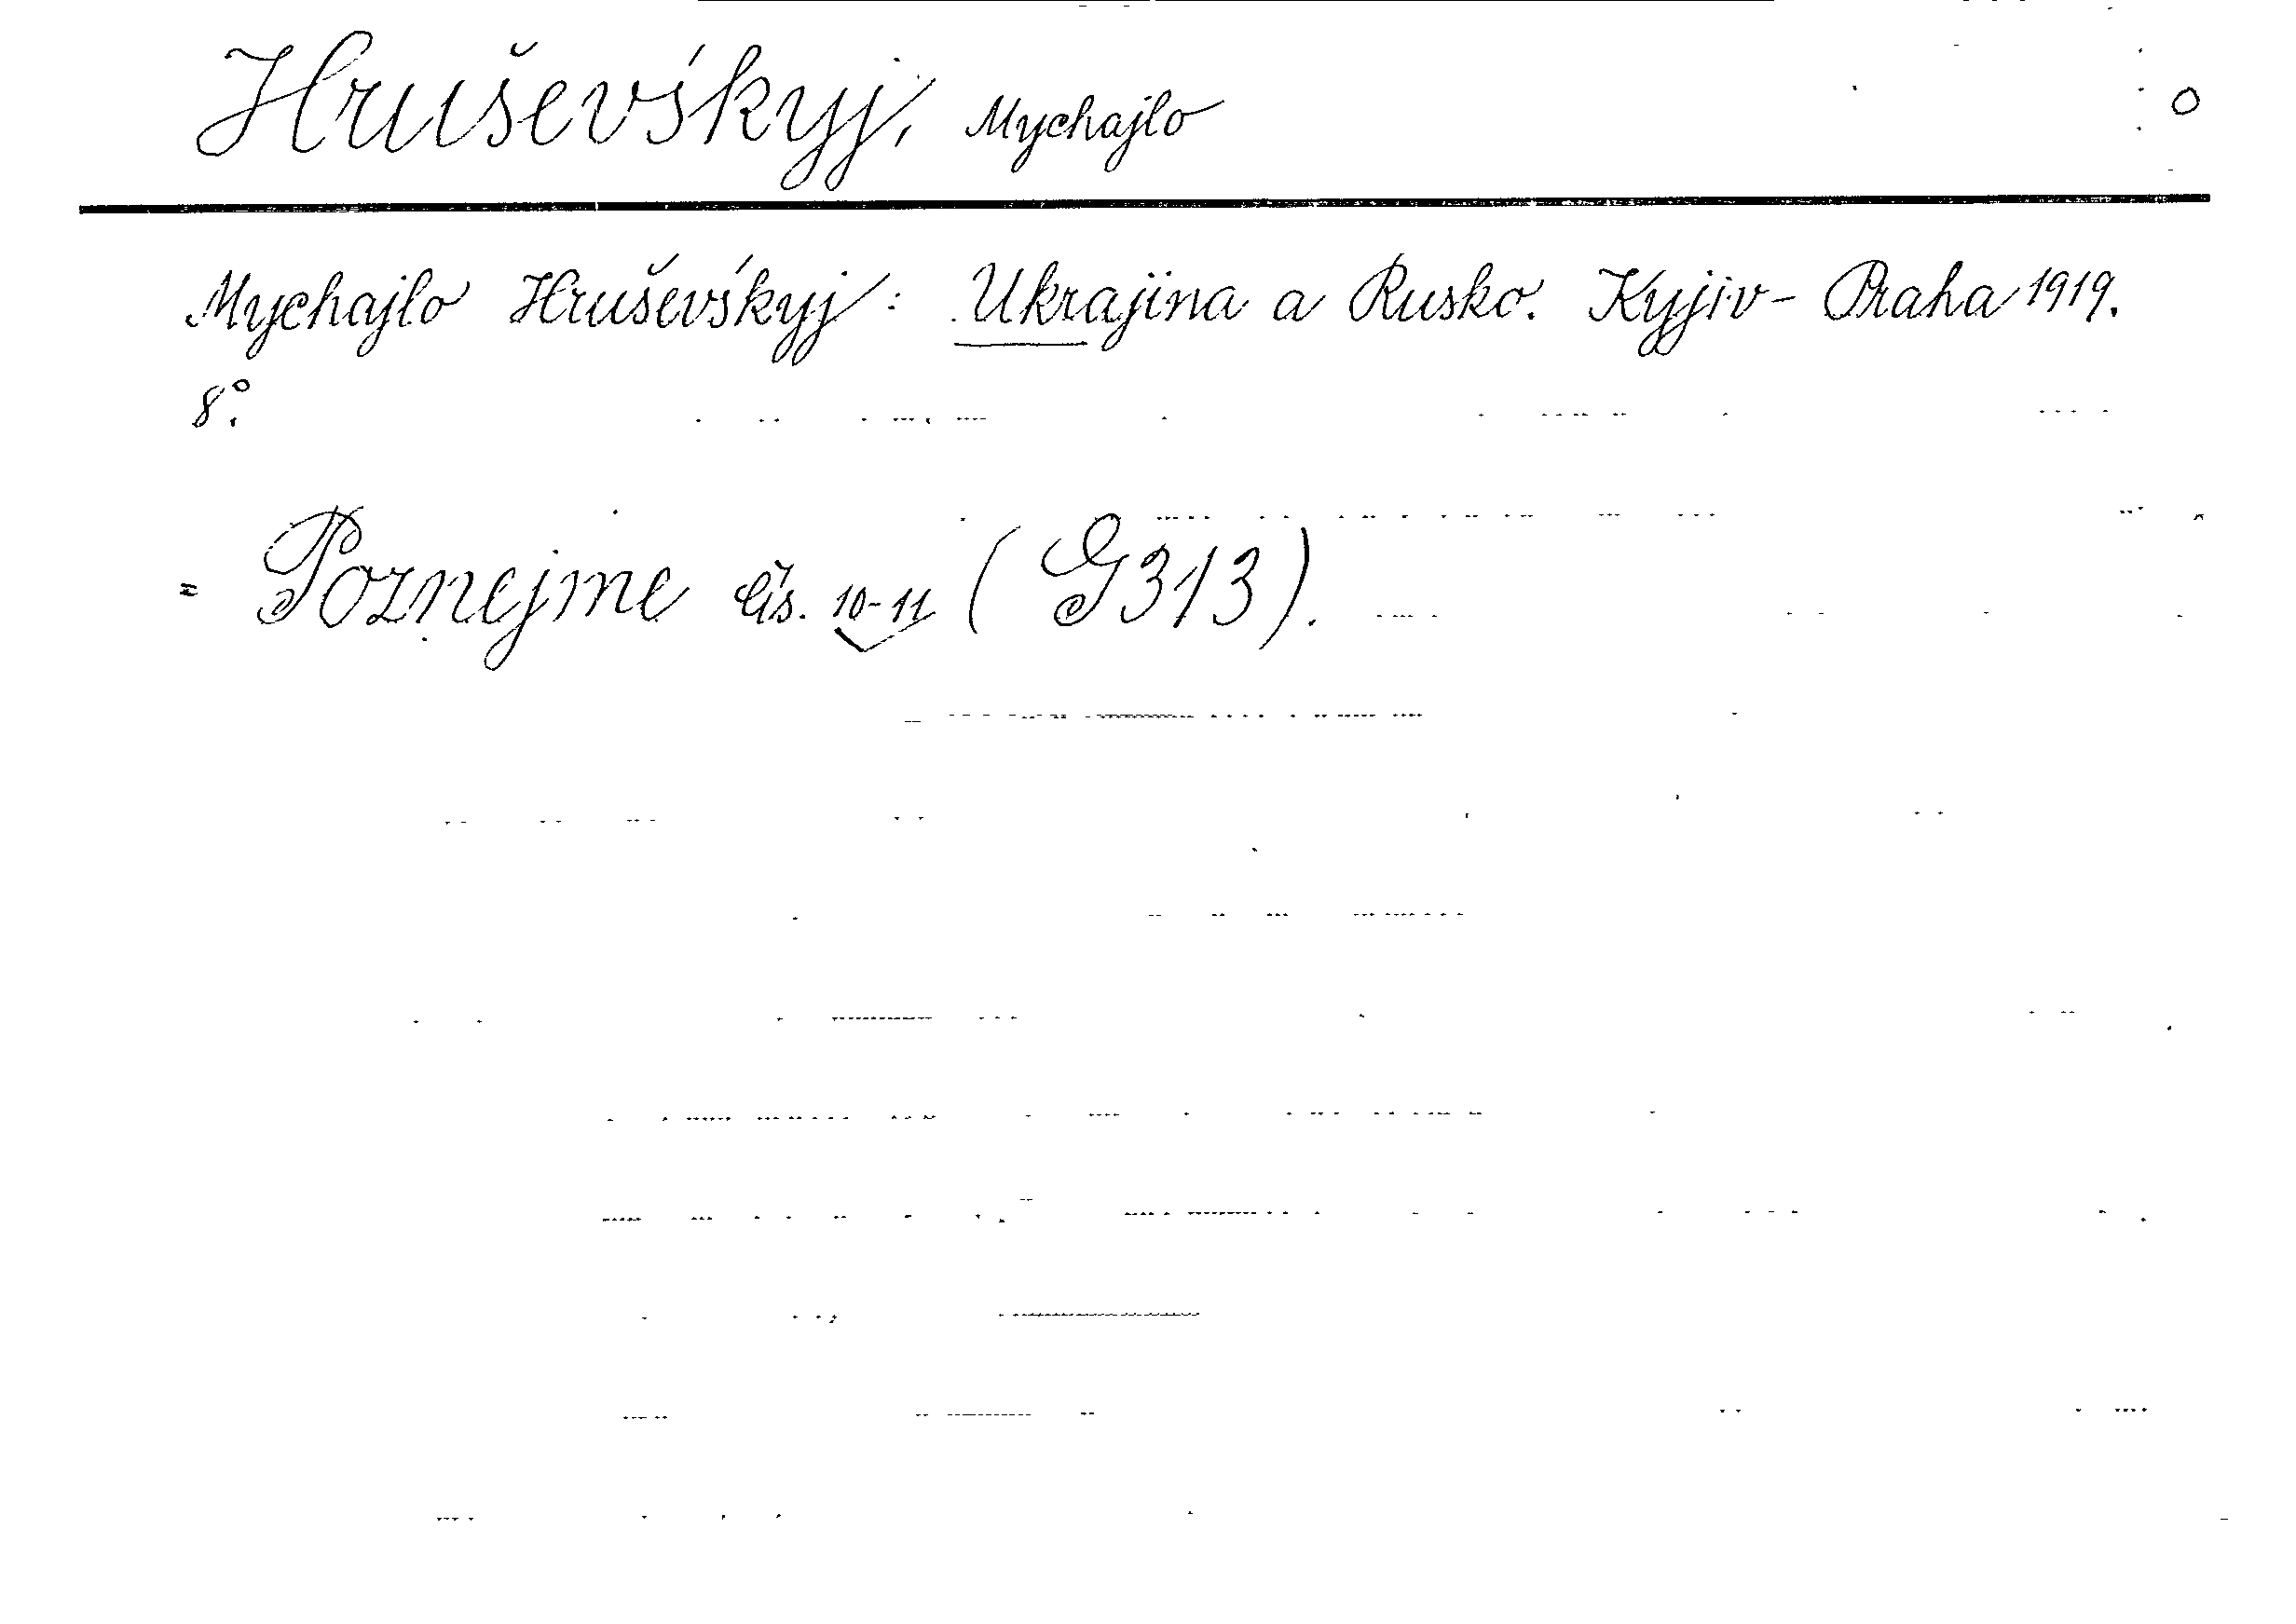 Hruševśkyj, Mychajlo
O
Mychajlo Hruševśkyj: Ukrajina a Rusko. Kyjiv - Praha 1919.
8°.
= Poznejme čís. 10-11 (G313).